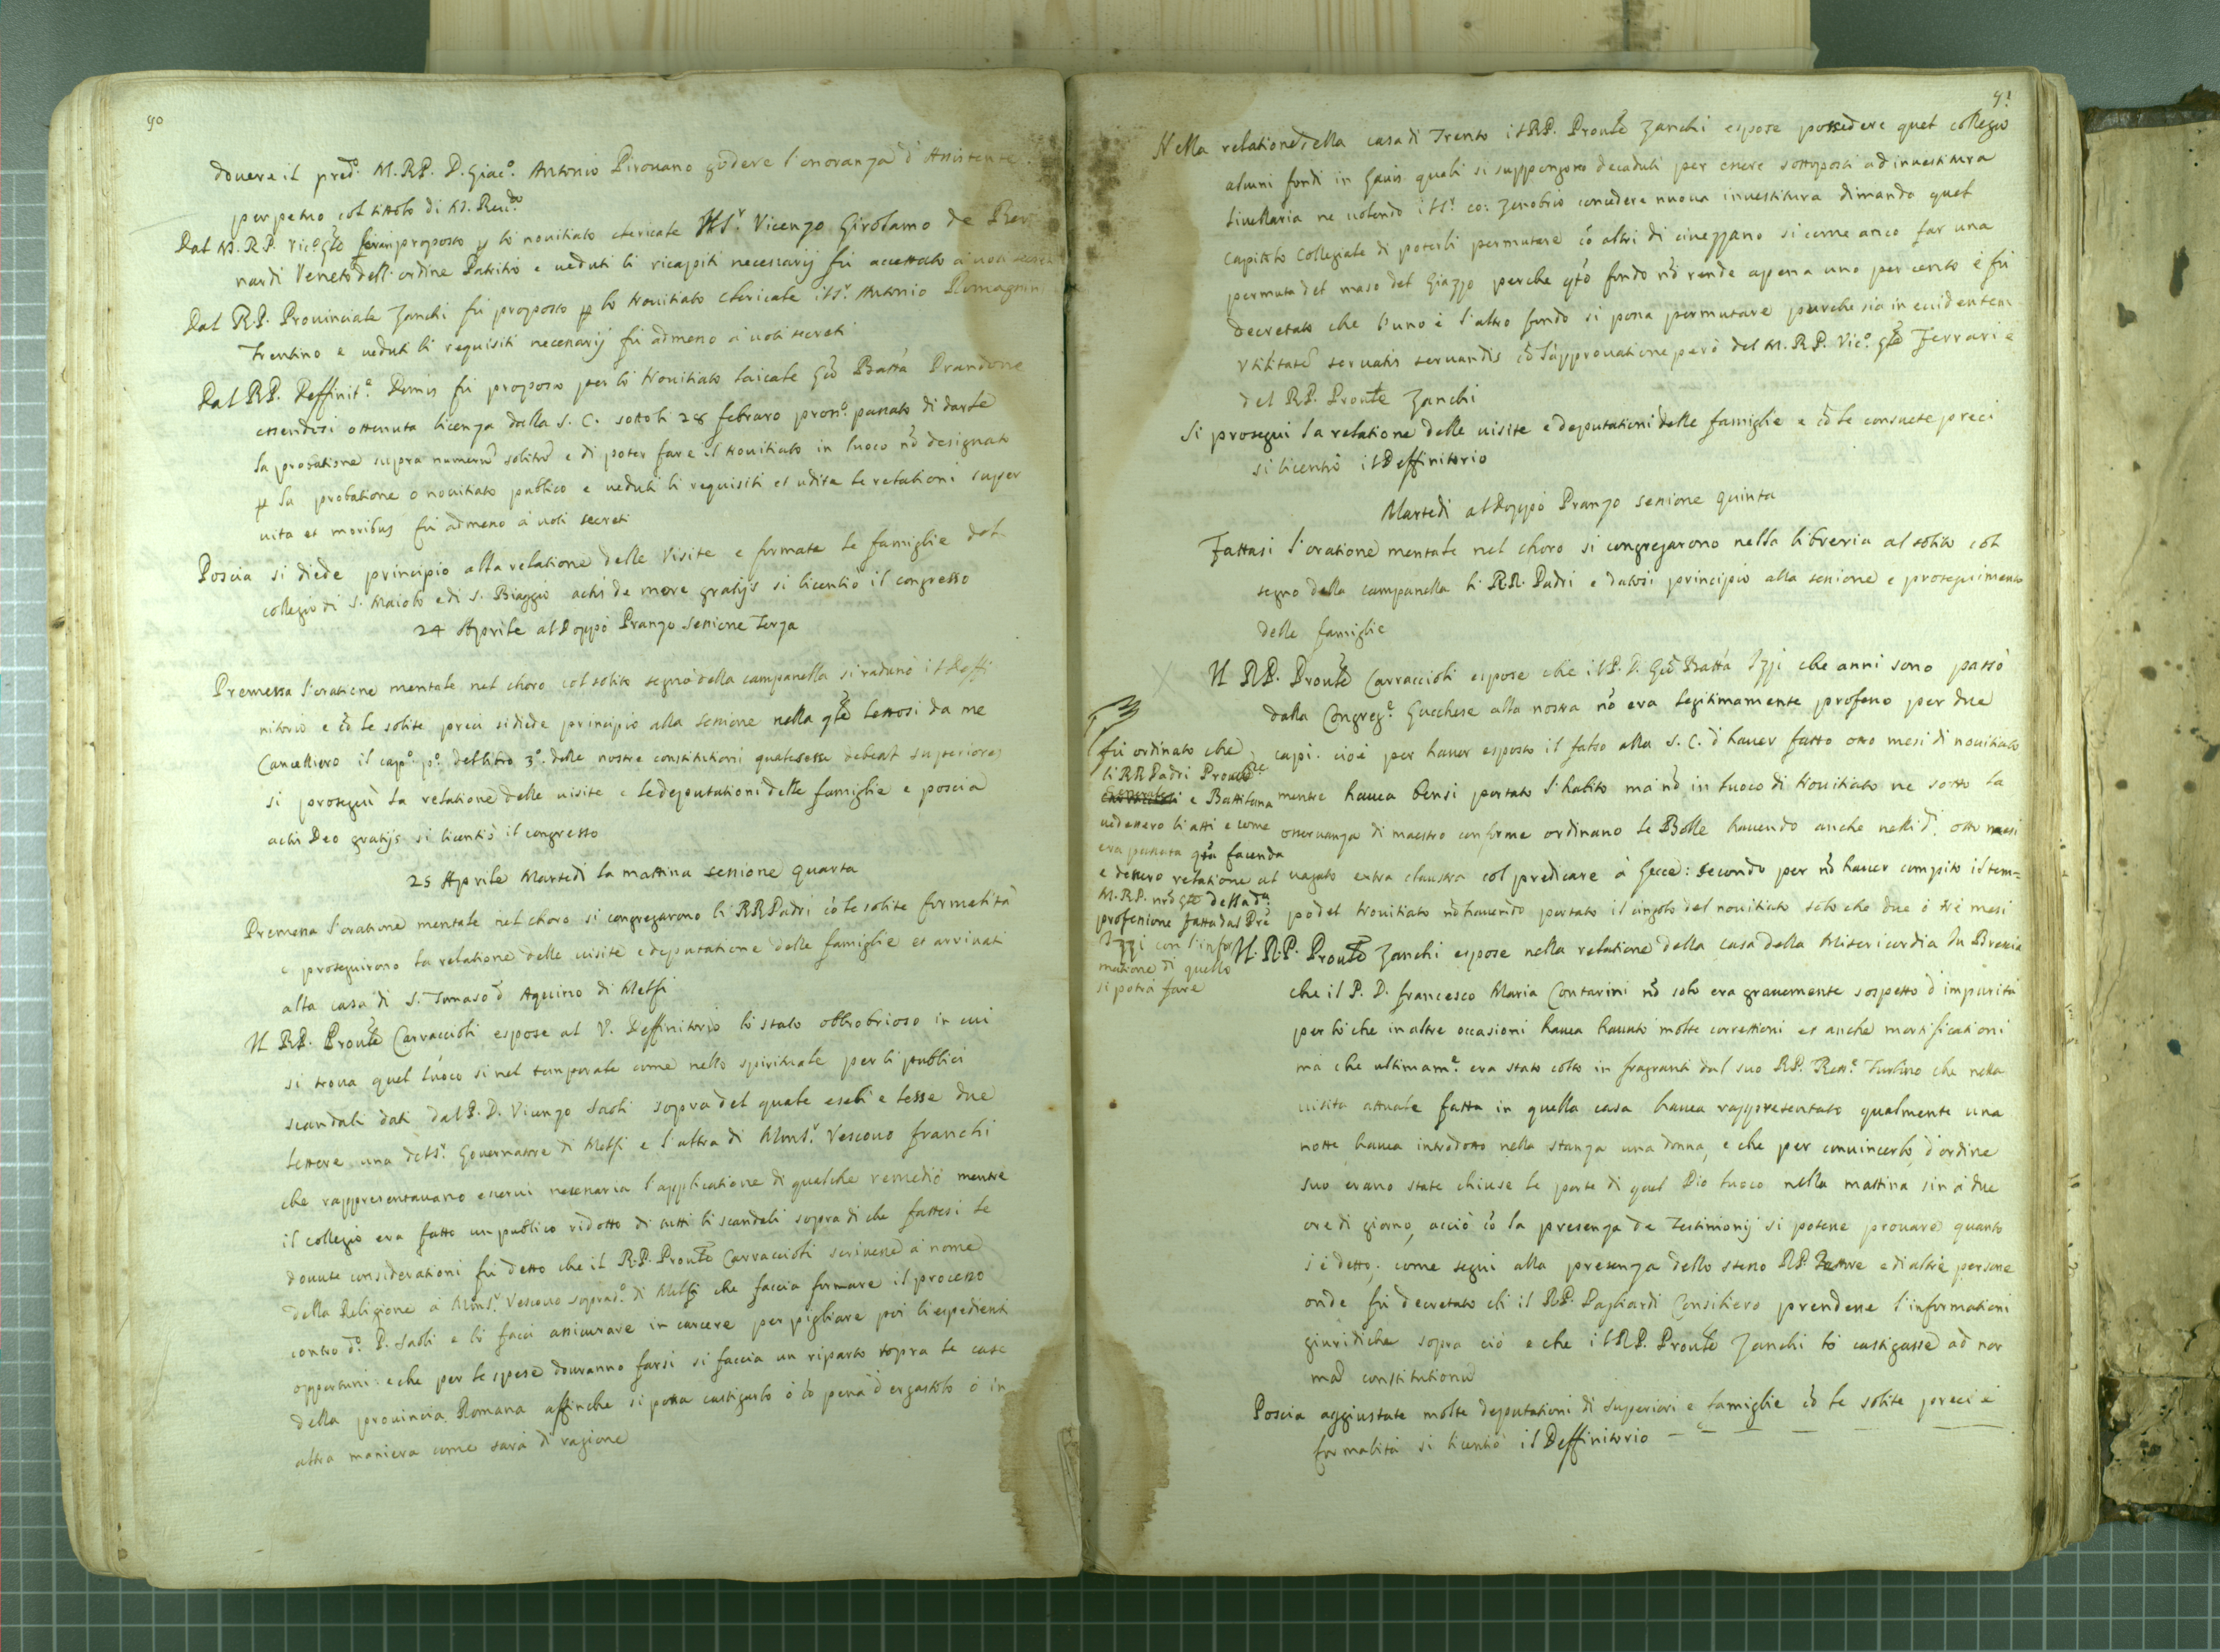 90
douere il pred.º M.RP. D. Giac.º Antonio Pirouano godere l'onoranza d'Assistente
perpetuo col titolo di M. Reu.do
Dal M.R.P. Vic.º Gñle proposto p lo nouitiato chericale Il S.r Vicenzo Girolamo de
nardi Veneto dell'ordine Patritio e ueduti li ricapiti necessarij fù accettato à uoti
Dal R.P. Prouinciale Zanchi fù proposto p lo Nouitiato chericale il S.r Antonio Romagnini
Trentino e ueduti li requisiti necessarij fù admesso à uoti secreti
Dal RP. Deffinit.e fù proposto per lo Nouitiato laicale Gio Batta Brandone
essendosi ottenuta licenza dalla S. C. sotto li 28 febraro pross.º passato di darle
la probatione supra numerũ solitũ e di poter fare il Nouitiato in luoco nõ designato
p la probatione o nouitiato publico e ueduti li requisiti et udite le relationi super
uita et moribus fù admesso à uoti secreti
Poscia si diede principio alla relatione delle Visite e formate le famiglie del
collegio di S. Maiolo e di S. Biaggio actis de more gratijs si licentiò il congresso
24 Aprile al Doppò Pranzo Sessione Terza
Premessa l'oratione mentale nel choro col solito segno della campanella si radunò il Deffi
nitorio e cõ le solite preci si diede principio alla Sessione nella qle lettosi da me
Cancelliero il cap.º p.º del libro 3.º delle nostre constitutioni quales esse debeãt superiores
si proseguì la relatione delle uisite e le deputationi delle famiglie e poscia
actis Deo gratijs si licentiò il congresso
25 Aprile Martedì la mattina sessione quarta
Premessa l'oratione mentale nel choro si congregarono li RR Padri cõ le solite formalità
e proseguirono la relatione delle uisite e deputatione delle famiglie et arriuati
alla casa di S. Tomaso d'Aquino di Melfi
Il RP. Proule Carraccioli espose al V. Deffinitorio lo stato obbrobrioso in cui
si troua quel luoco sì nel temporale come nello spirituale per li publici
scandali dati dal P. D. Vicenzo Saoli sopra del quale esebì e lesse due
lettere una del S.r Gouernatore di Melfi e l'altra di Mons.r Vescouo franchi
che rappresentauano esserui necessaria l'applicatione di qualche remedio mentre
il collegio era fatto un publico ridotto di tutti li scandali sopra di che fattesi le
douute considerationi fù detto che il R.P. Proule Carraccioli scriuesse à nome
della Religione à Mons.r Vescouo soprad.º di Melfi che faccia formare il processo
contro d.º P. Saoli e lo facci assicurare in carcere per pigliare poi li espedienti
opportuni e che per le spese douranno farsi si faccia un riparto sopra le case
della prouincia Romana affinche si possa castigarlo ò cõ pena d'ergastolo ò in
altra maniera come sarà di ragione
91
Nella relatione della casa di Trento il RP. Proule Zanchi espose possedere quel collegio
alcuni fondi in quali si suppongono decaduti per essere sottoposti ad inuestitura
liuellaria ne uolendo il S.r co: Zenobrio concedere nuoua inuestitura dimanda quel
capitolo collegiale di poterli permutare cõ altri di ciuezzano si come anco far una
permuta del maso del Giazzo perche qto fondo nõ rende apena uno per cento e fù
decretato che l'uno e l'altro fondo si possa permutare purche sia in euidentem
vtilitatẽ seruatis seruandis cõ l'approuatione però del M.R.P. Vic.º Gñle Ferrari e
del R.P. Proule Zanchi
Si proseguì la relatione delle uisite e deputationi delle famiglie e cõ le consuete preci
si licentiò il Deffinitorio
Martedì al Doppò Pranzo sessione quinta
Fattasi l'oratione mentale nel choro si congregarono nella libreria al solito col
segno della campanella li RR. Padri e datosi principio alla sessione e proseguimento
delle famiglie
Il RP. Proule Carraccioli espose che il P. D. Gio Batta Izzi che anni sono passò
dalla Congreg.e Gucchese alla nostra nõ era legitimamente professo per due
capi. cioè per hauer esposto il falso alla S. C. d'hauer fatto otto mesi di nouitiato
mentre hauea bensì portato l'habito mà nõ in luoco di Nouitiato ne sotto la
osseruanza di maestro conforme ordinano le Bolle hauendo anche nelli d. otto mesi
uagato extra claustra col predicare à Gecce: secondo per nõ hauer compito il tem=
po del Nouitiato nõ hauendo portato il cingolo del nouitiato solo che due ò trè mesi
fù ordinato che
li RR Padri Proule
e Battilana
uedessero li atti e come
era passata qta facenda
e dessero relatione al
M.R.P. nro Gñle della d.a
professione fatta dal Pre
Izzi con l'infor
matione di quello
si potrà fare
Il R.P. Proule Zanchi espose nella relatione della casa della Misericordia in Brescia
che il P. D. francesco Maria Contarini nõ solo era grauemente sospetto d'impurità
per lo che in altre occasioni hauea hauuto molte correttioni et anche mortificationi
mà che ultimam.e era stato colto in fragranti dal suo RP. Rett.e Turlino che nella
uisita attuale fatta in quella casa hauea rappresentato qualmente una
notte hauea introdotto nella stanza una donna, e che per conuincerlo, d'ordine
suo erano state chiuse le porte di quel Pio luoco nella mattina sin à due
ore di giorno, acciò cõ la presenza de Testimonij si potesse prouare quanto
s'è detto, come seguì alla presenza dello stesso RP. Rettore e di altre persone
onde fù decretato ch il RP. Pagliardi Consiliero prendesse l'informationi
giuridiche sopra ciò e che il RP. Proule Zanchi lo castigasse ad nor
mã constitutionũ
Poscia aggiustate molte deputationi di Superiori e famiglie cõ le solite preci e
formalità si licentiò il Deffinitorio